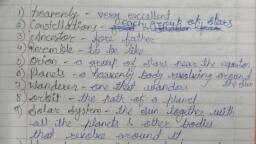 1) Heavenly - very excellent
2) Constellations - group of stars
3) Ancestor - fore father
4) Resemble - to be like
5) Orion - a group of stars near the equator
6) Planets - a heavenly body revolving around the sun
7) Wanderer - one that wanders
8) Orbit - the path of a planet
9) Solar System - the sun together with
all the planets & other bodies
that revolve around it